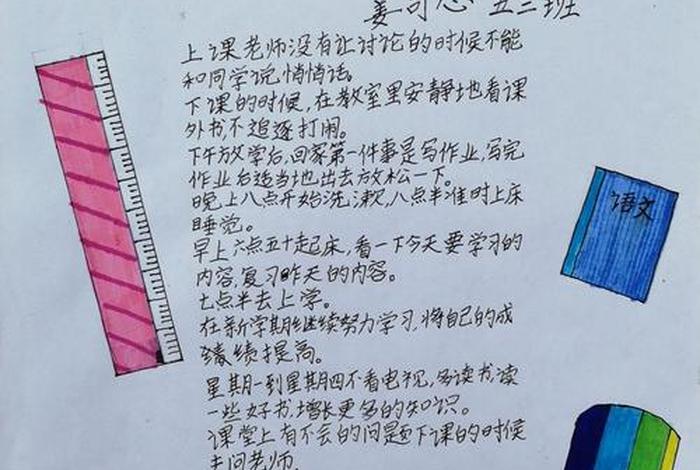 姜可心 五三班
上课老师没有让讨论的时候不能
和同学说,悄悄话。
下课的时候,在教室里安静地看课
外书,不追逐打闹。
下午放学后,回家第一件事是写作业,写完
作业后适当地出去放松一下。
晚上八点开始洗漱,八点半准时上床
睡觉。
早上六点五十起床,看一下今天要学习的
内容,复习昨天的内容。
七点半去上学。
在新学期继续努力学习,将自己的成
绩提高。
星期一到星期四不看电视,多读书,读
一些好书,增长更多的知识。
课堂上有不会的问题下课的时候
去问老师.
语文